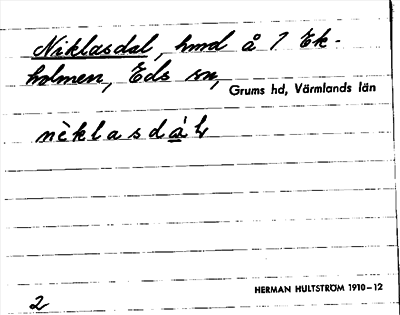 Niklasdal, hmd å 1 Ek-
holmen, Eds sn,
Grums hd, Värmlands län
nèklasdàl
HERMAN HULTSTRÖM 1910–12
2